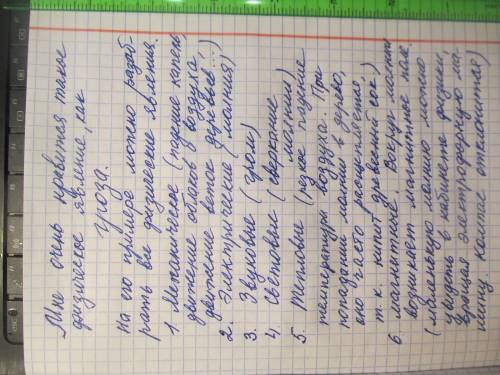 Мне очень нравится такое
физическое явление, как
гроза.
На его примере можно разоб-
рать все физические явления.
1. Механическое (падение капель,
движение облаков и воздуха
движение веток деревьев...)
2. Электрические (молния)
3. Звуковые (гром)
4. Световые (сверкание
молнии)
5. Тепловые (резкое падение
температуры воздуха. При
попадании молнии в дерево,
оно часто расщепляется,
т.к. кипит древесный сок.)
6. Магнитные. Вокруг молнии
возникает магнитное поле
(маленькую молнию можно
увидеть в кабинете физики,
вращая электрофорную ма-
шину. компас отклонится)